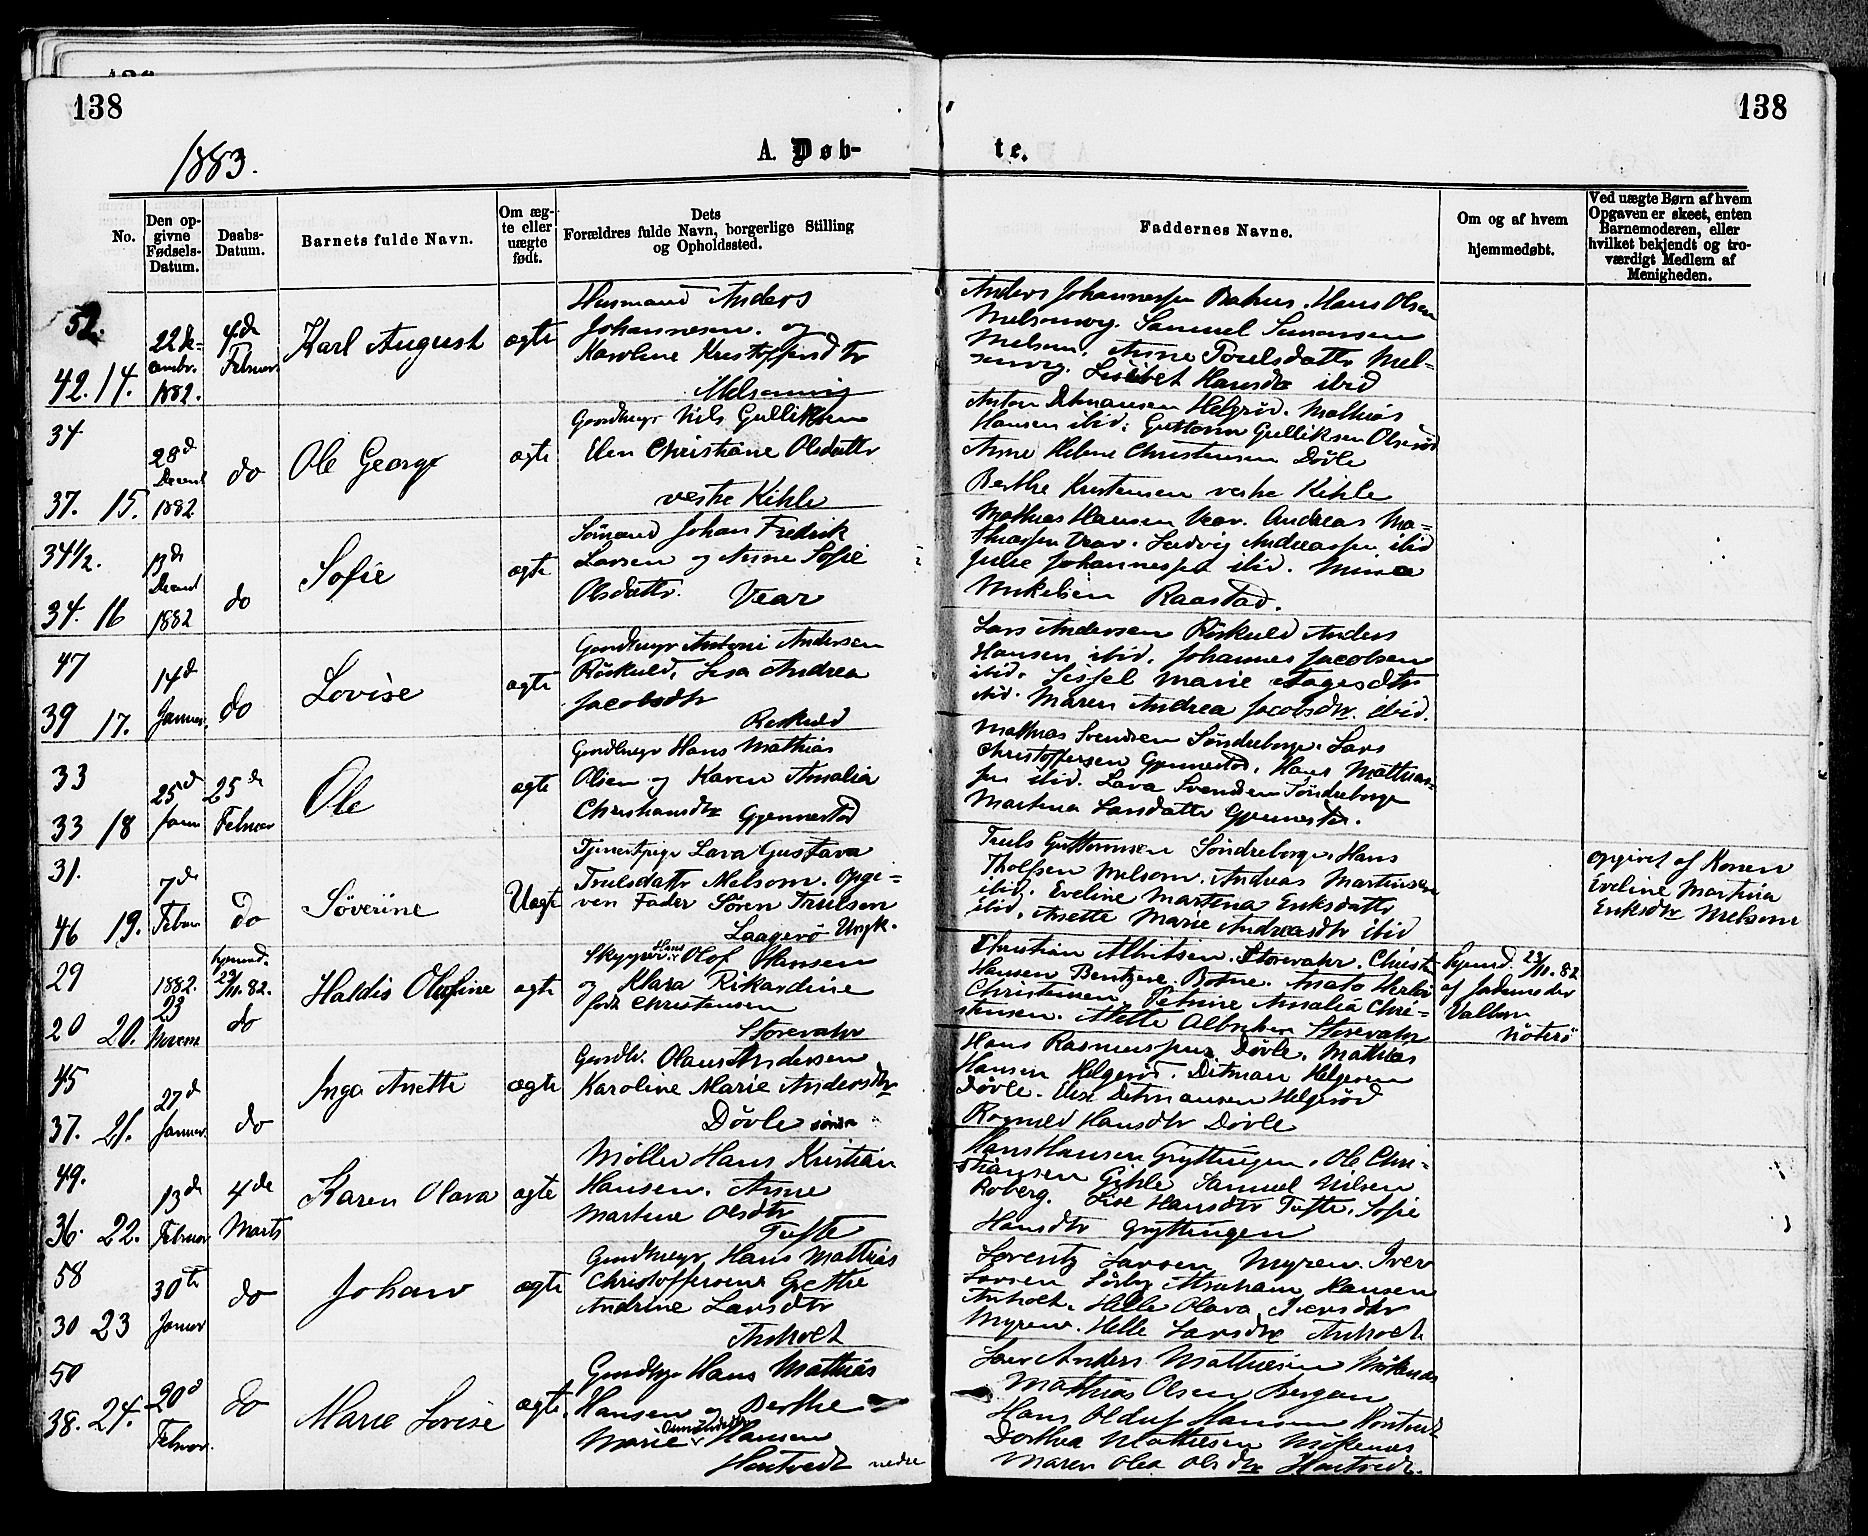 138
138
1883.
A. Døb-
te.
No.
Den op-
givne
Fødsels-
Datum.
Daabs-
Datum.
Barnets fulde Navn.
Om æg-
te eller
uægte
født.
Dets
Forældres fulde Navn, borgerlige Stilling
og Opholdssted.
Faddernes Navne.
Om og af hvem
hjemmedøbt.
Ved uægte Børn af hvem
Opgaven er skeet, enten
Barnemoderen, eller
hvilket bekjendt og tro-
værdigt Medlem af
Menigheden.
52.
42. 14.
22 De-
cembr.
1882.
4de
Februar
Karl August
ægte
Husmand Anders
Johannesen og
Karoline Kristoffersdtr
Melsomvig
Anders Johannessen Bakus. Hans Olsen
Melsomvig. Samuel Simonsen
Melsom. Anne Poulsdattr Mel-
somvig. Lisibet Hansdtr ibid
34
37. 15.
28d
Decemb
1882
do
Ole George
ægte
Gaardbruger Nils Gulliksen
Elen Christiane Olsdattr
vestre Kihle
Anton Ditmansen Helgerød. Mathias
Hansen ibid. Guttorm Gulliksen Olsrød
Anne Helene Christensen Døvle
Berthe Kristensen vestre Kihle
34 1/2.
34. 16
13de
Decemb
1882
do
Sofie
ægte
Sømand Johan Fredrik
Larsen og Anne Sofie
Olsdattr. Vear
Mathias Hansen Vear. Andreas Ma-
thiassen Vear. Ludvig Andreassen ibid
Julie Johannessen ibid.
Mikkelsen Raastad.
47
39 17.
14d
Januar.
do
Lovise
ægte
Gaardbruger Antoni Andersen
Røskuld, Lisa Andrea
Jacobsdtr
Røskuld
Lars Andersen Røskuld Anders
Hansen ibid. Johannes Jacobsen
ibid. Sissel Marie Aagesdtr
ibid. Maren Andrea Jacobsdtr. ibid.
33
33 18
25d
Janu
25de
Februar
Ole
ægte
Gaardbruger Hans Mathias
Olsen og Karen Amalia
Christiansdtr Gjennestad
Mathias Svendsen Søndreborge. Lars
Christoffersen Gjennestad. Hans Mathias-
sen ibid. Lava Svendsen Søndreborge
Martina Larsdatter Gjennestad.
31.
46 19.
7de
Febru
do
Søverine
Uægte
Tjenestpige Lava Gustava
Truelsdattr Melsom. Opgi-
ven Fader Søren Truelsen
Laagerø Ungk.
Truls Guttormsen Søndreborge. Hans
Tholfsen Melsom. Andreas Martinsen
ibid. Eveline Martina Eriksdattr
ibid. Anette Marie Andreasdtr ibid
opgivet af Konen
Eveline Martina
Eriksdtr Melsom
29
20 20.
1882.
23
Novem
hjemmd.
23/11. 82.
do
Haldis Olufine
ægte
Skipper Hans Olof Hansen
og Klara Rikardine
født Christensen
Storevahr
Christian Albrtsen. Storevahr. Christ
Hansen Bentzere Botne. Anato Herlov
Christensen. Petrine Amalia Chri-
stensen. Mette Albrtsen Storevahr
hjemd. 23/11. 82
af Jordmoder
Valborg
Nøterø
45
37. 21.
27d
Januar.
do
Inga Anette
ægte
Gaardbr. Olaus Andersen
Karoline Marie Andersdtr
Døvle søndre
Hans Rasmussen Døvle. Mathias
Hansen Helgerød. Ditman Helgesen
Døvle. Else Ditmansen Helgerød
Ragnild Hansdtr Døvle
49.
36. 22.
13de
Februar
4de
Marts
Karen Olava
ægte
Møller Hans Kristian
Hansen. Anne
Martine Olsdtr
Tufte
Hans Hansen Gryttingen. Ole Chri-
stiansen Gihle Samuel Nilsen
Roberg. Lise Hansdtr Tufte. Sofie
Hansdtr Gryttingen
58
30 23
30te
Januar
do
Johan
ægte
Gaardbruger Hans Mathias
Christoffersen Grethe
Andrine Larsdtr
Anholt
Lorentz Larsen Myren. Iver
Larsen Sørby Abraham Hansen
Anholt. Helle Olava Iversdtr
Myren. Helle Larsdtr Anholt
50
38. 24.
20d
Februar.
do
Marie Lovise
ægte.
Gaardbr Hans Mathias
Hansen og Berthe
Marie Hansen
Hontvedt nedre
Anders Mathiesen Møkenæs
Mathias Olsen Bergan
Hans Oluf Hansen Hontvedt
Dorthea Mathiesen Møkenæs
Maren Olea Olsdtr Hontvedt.